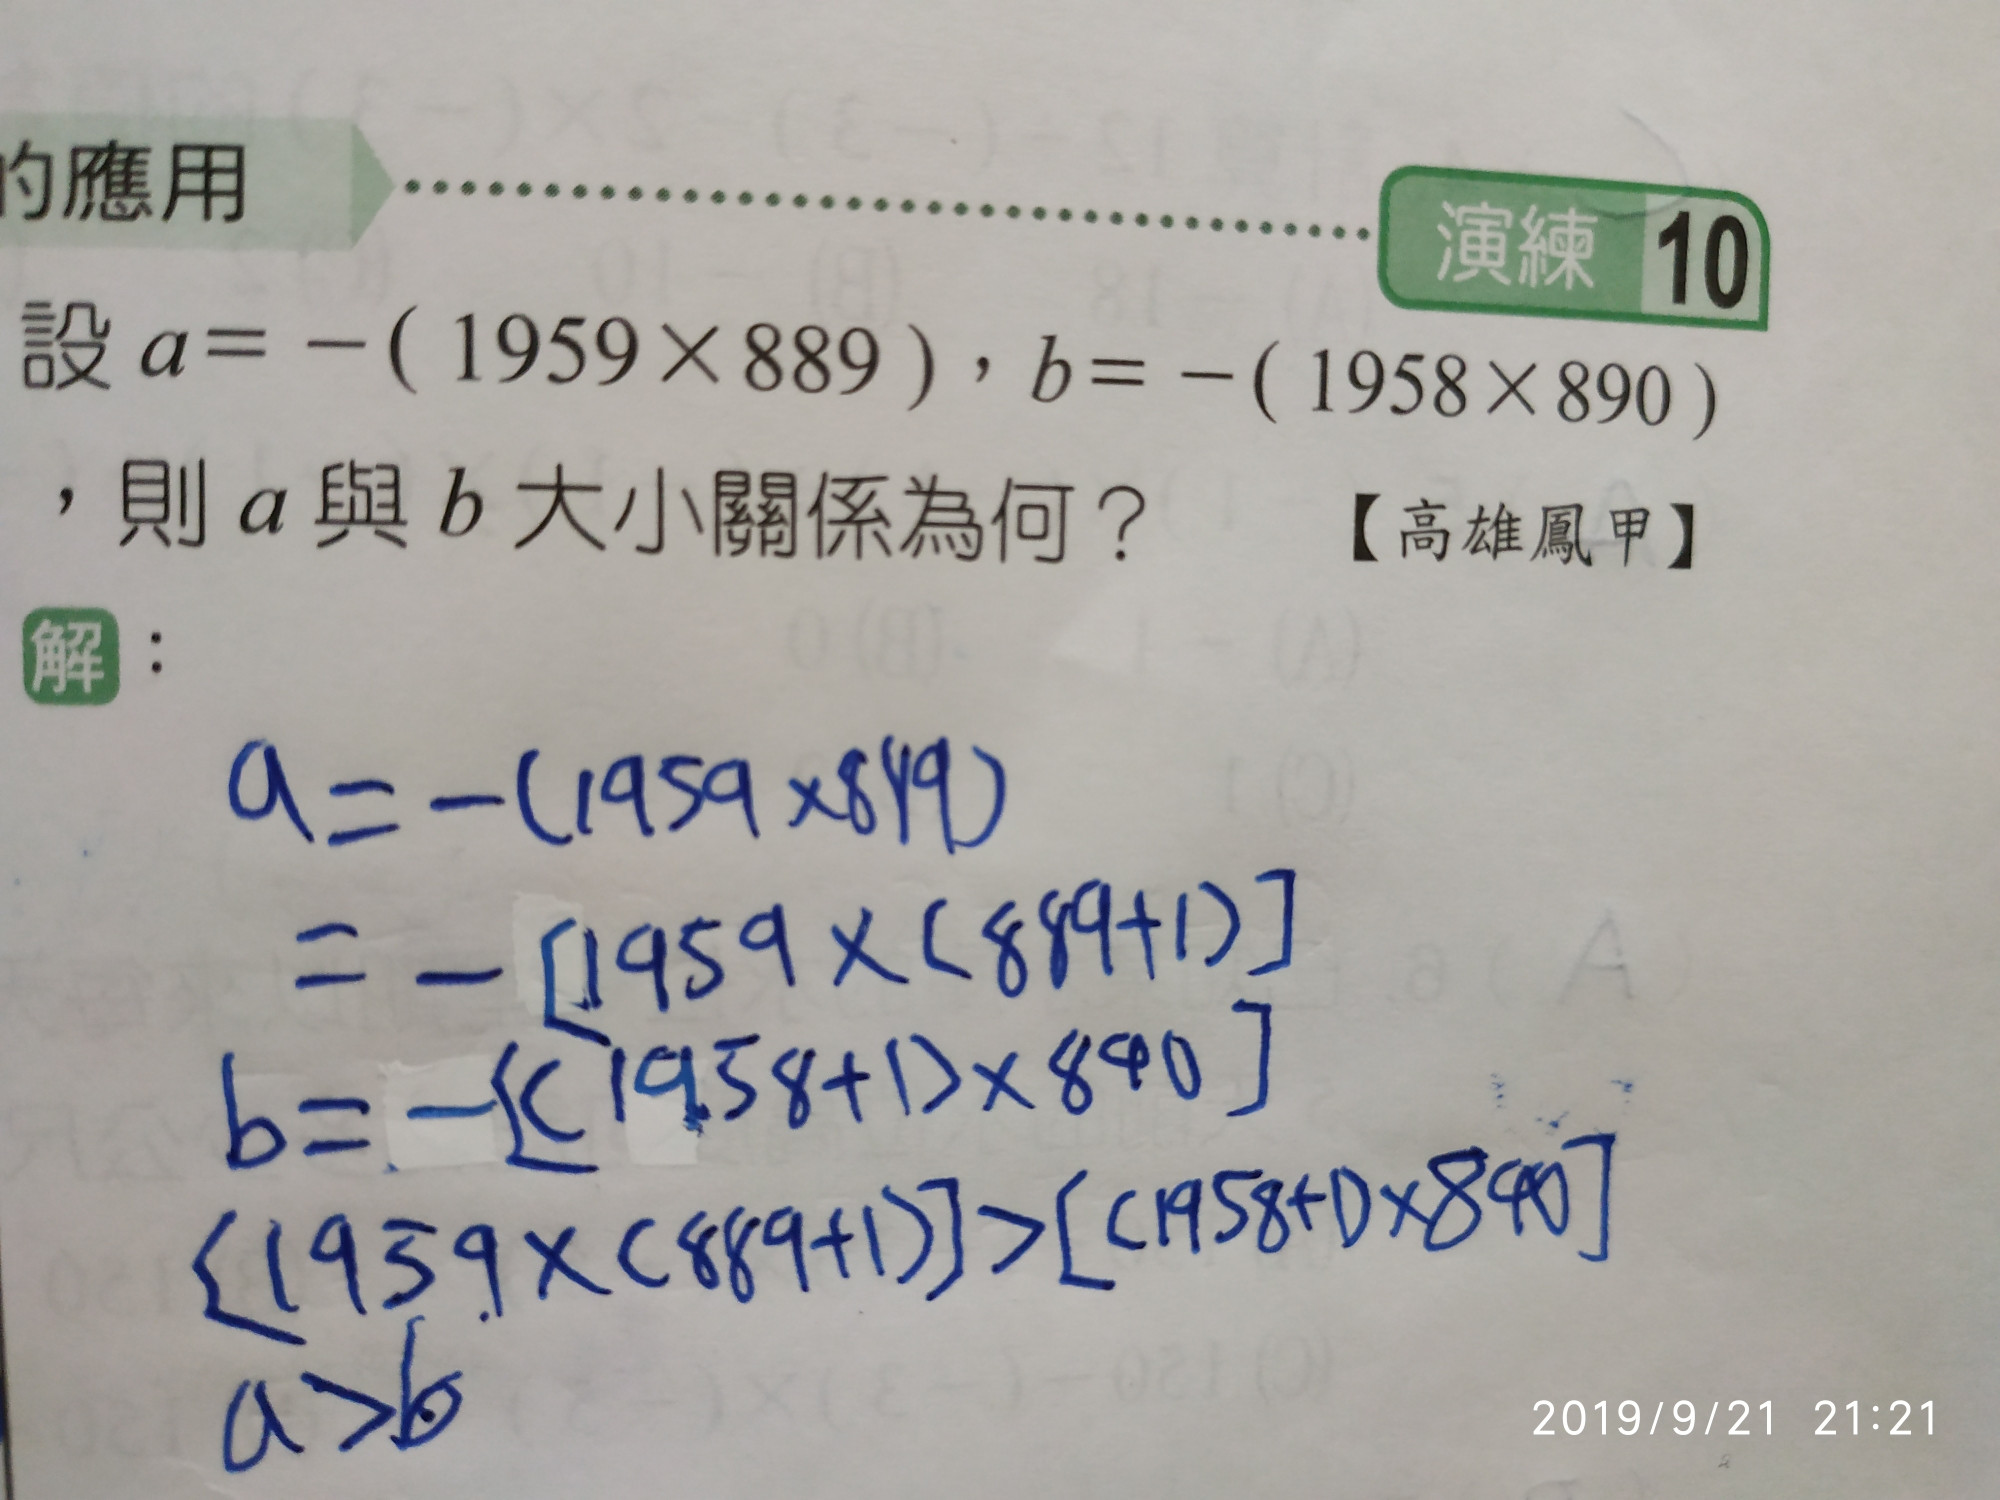 的應用
演練 10
設 a = -( 1959×889 ), b = -( 1958×890 )
,則 a 與 b 大小關係為何? 【高雄鳳甲】
解:
a = -(1959×889)
= -[1959×(889+1)]
b = -[(1958+1)×890]
[1959×(889+1)]>[(1958+1)×890]
a>b
2019/9/21 21:21